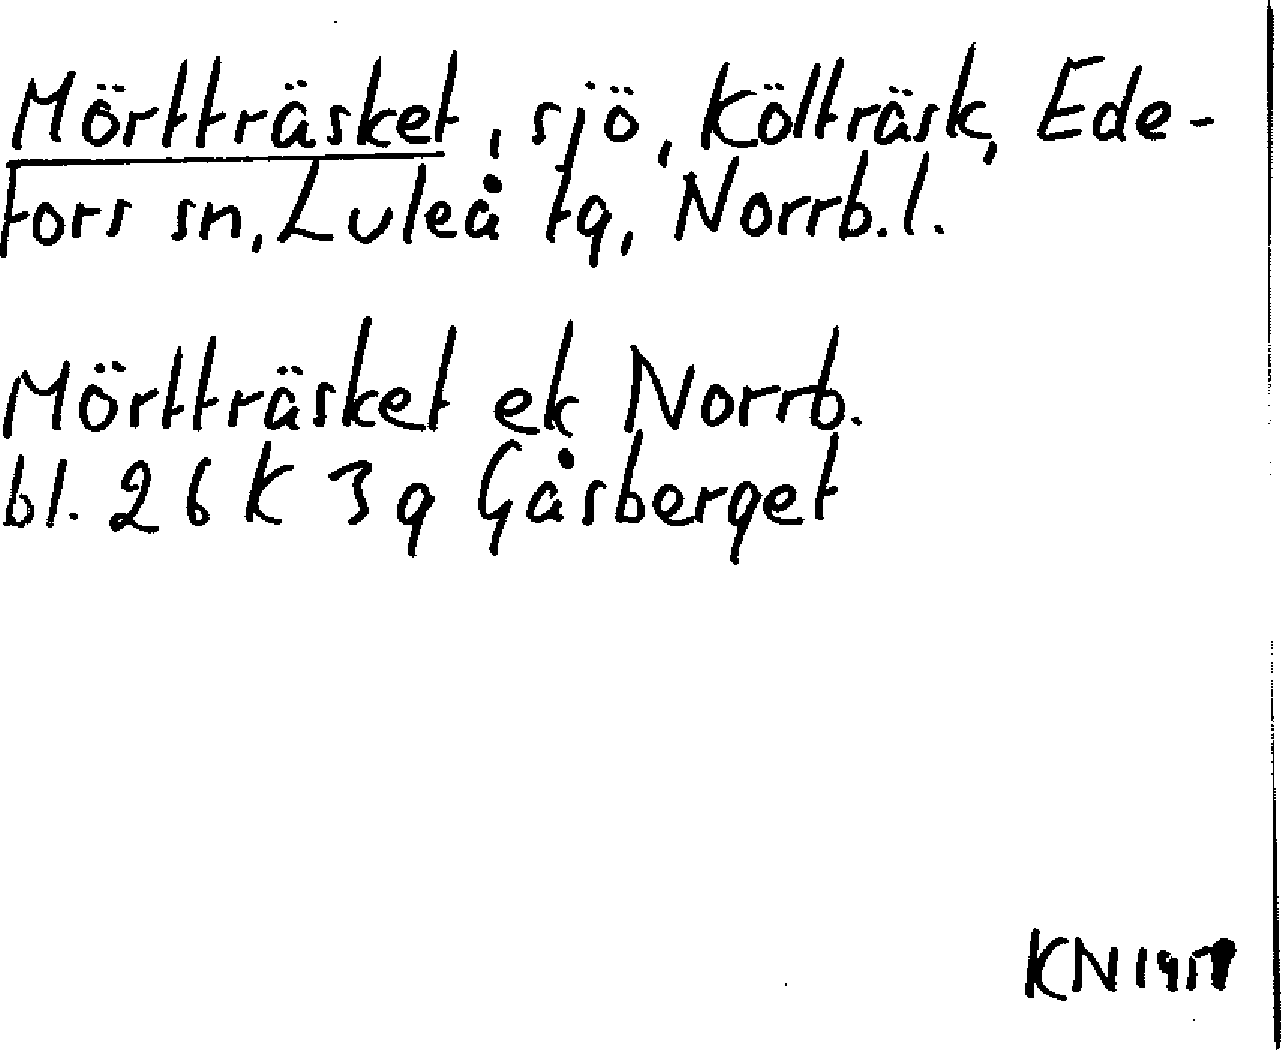 Mörtträsket, sjö, Költräsk, Ede-
fors sn, Luleå tg, Norrb. l.
Mörtträsket ek Norrb.
bl. 26 K 3 g Gåsberget
KN